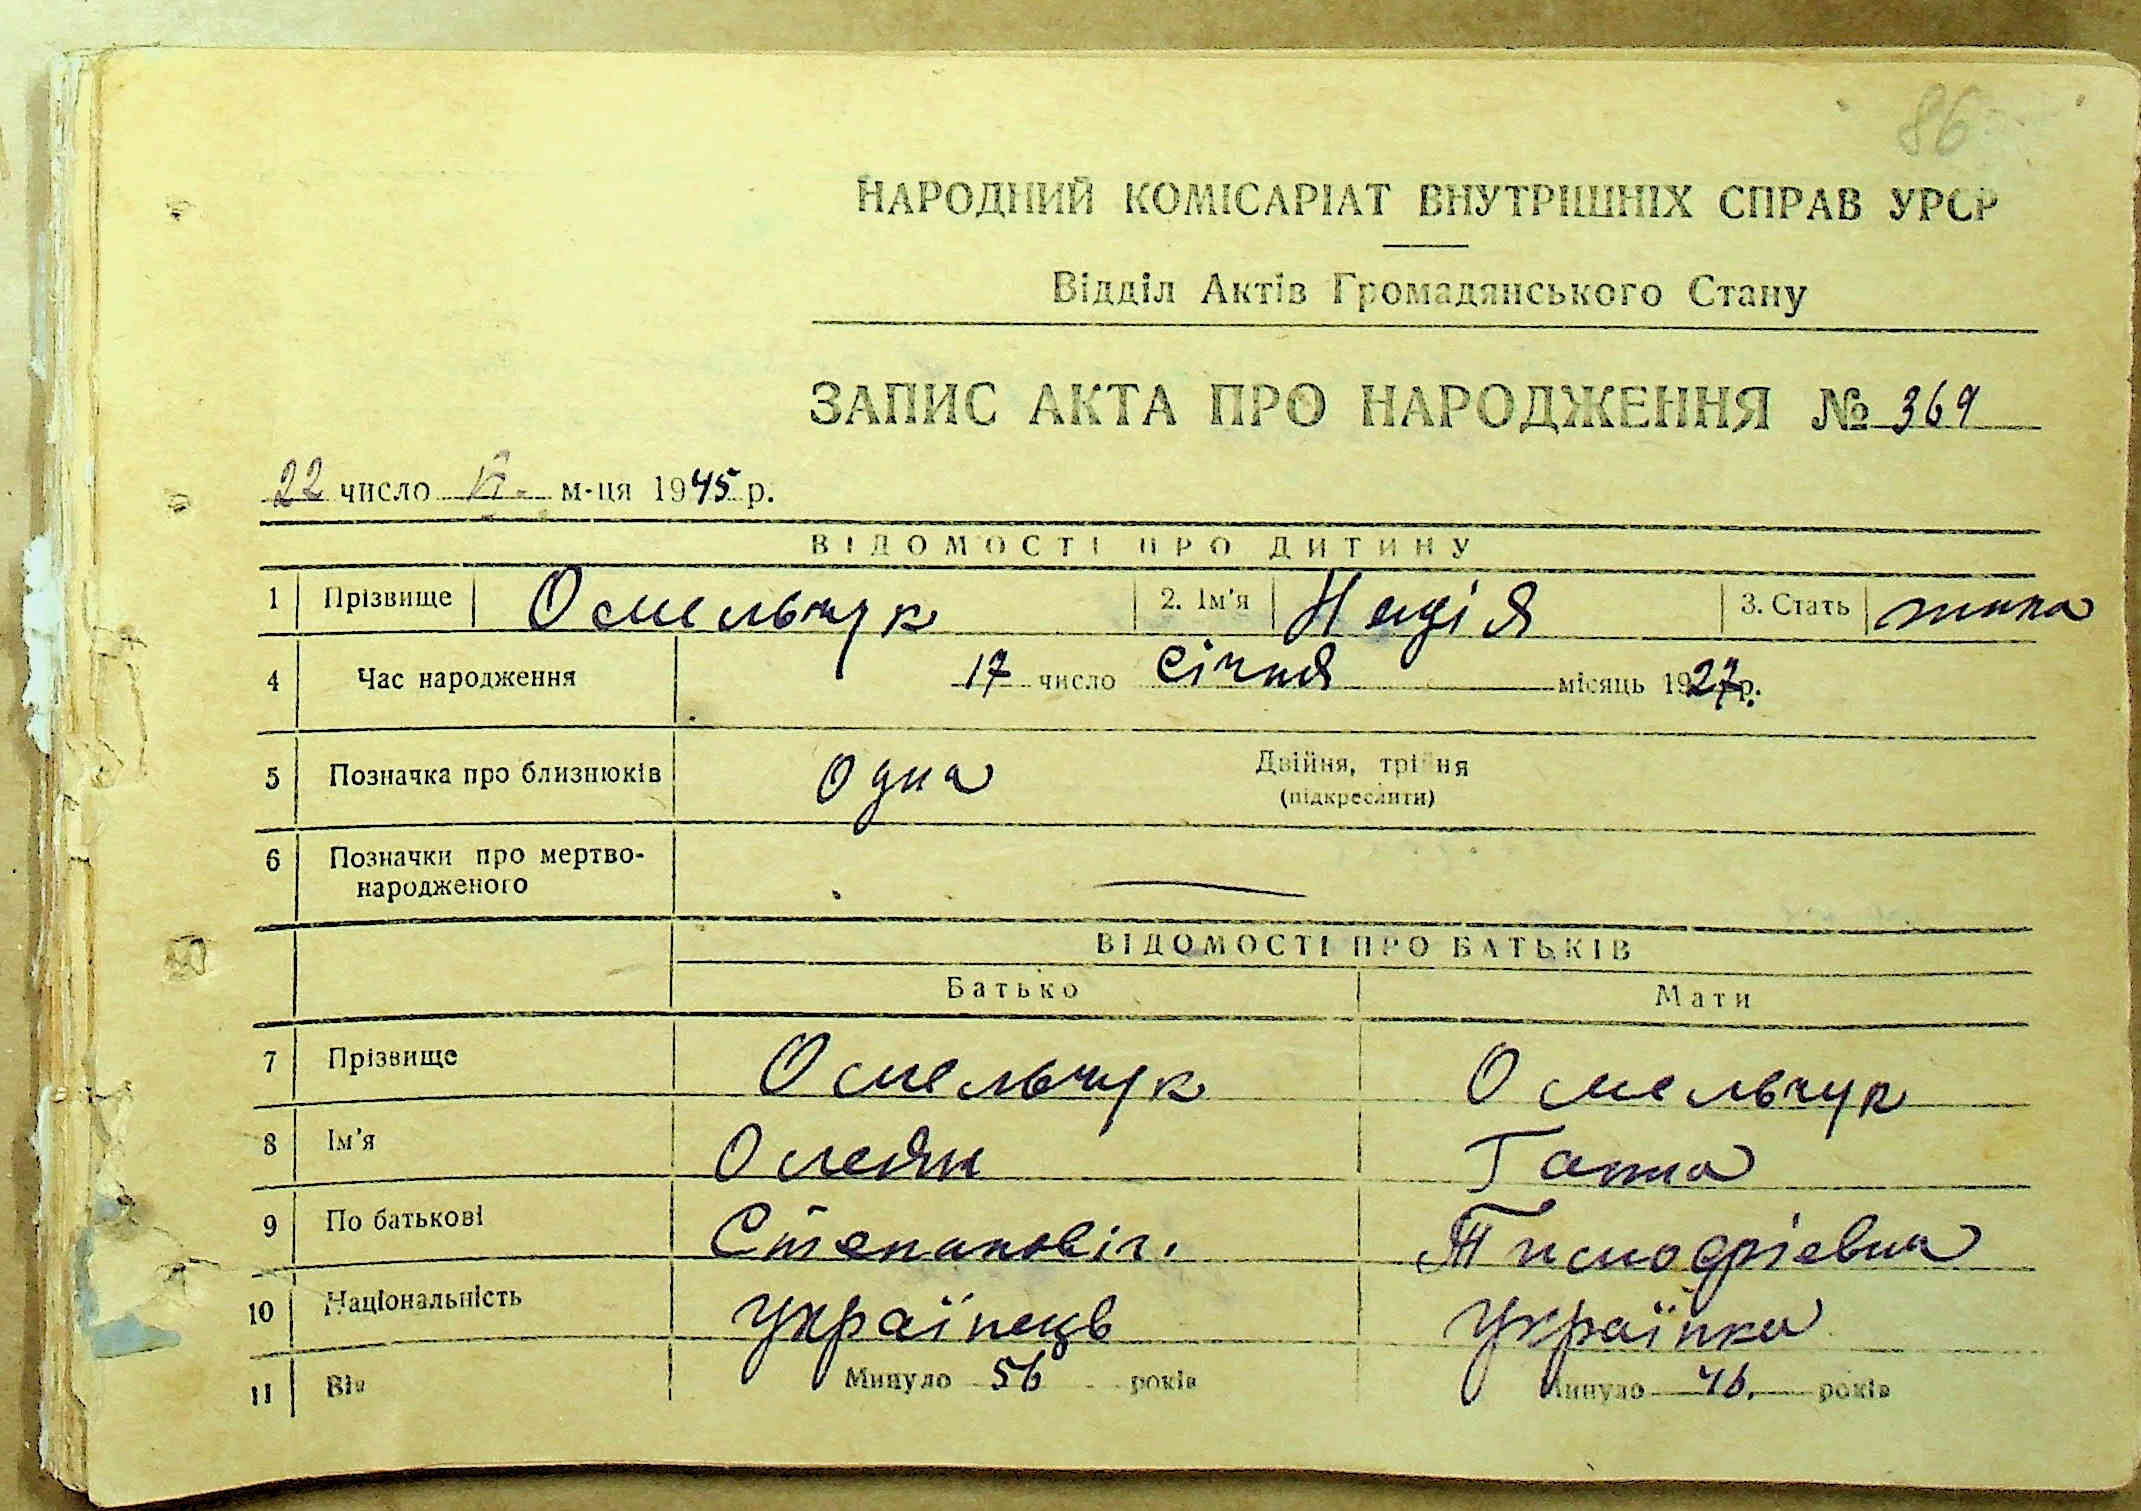 86
НАРОДНИЙ КОМІСАРІАТ ВНУТРІШНІХ СПРАВ УРСР
Відділ Актів Громадянського Стану
ЗАПИС АКТА ПРО НАРОДЖЕННЯ № 369
22 число VI. м-ця 1945 р.
ВІДОМОСТІ ПРО ДИТИНУ
1 Прізвище Омельчук 2. Ім'я Надія 3. Стать жіноча
4 Час народження 17 число січня місяць 1927 р.
5 Позначка про близнюків Одна Двійня, трійня
(підкреслити)
6 Позначки про мертво-
народженого
ВІДОМОСТІ ПРО БАТЬКІВ
Батько Мати
7 Прізвище Омельчук Омельчук
8 Ім'я Омелян Ганна
9 По батькові Степановіч. Тимофієвна
10 Національність Українець Українка
11 Вік Минуло 56 років Минуло 46. років